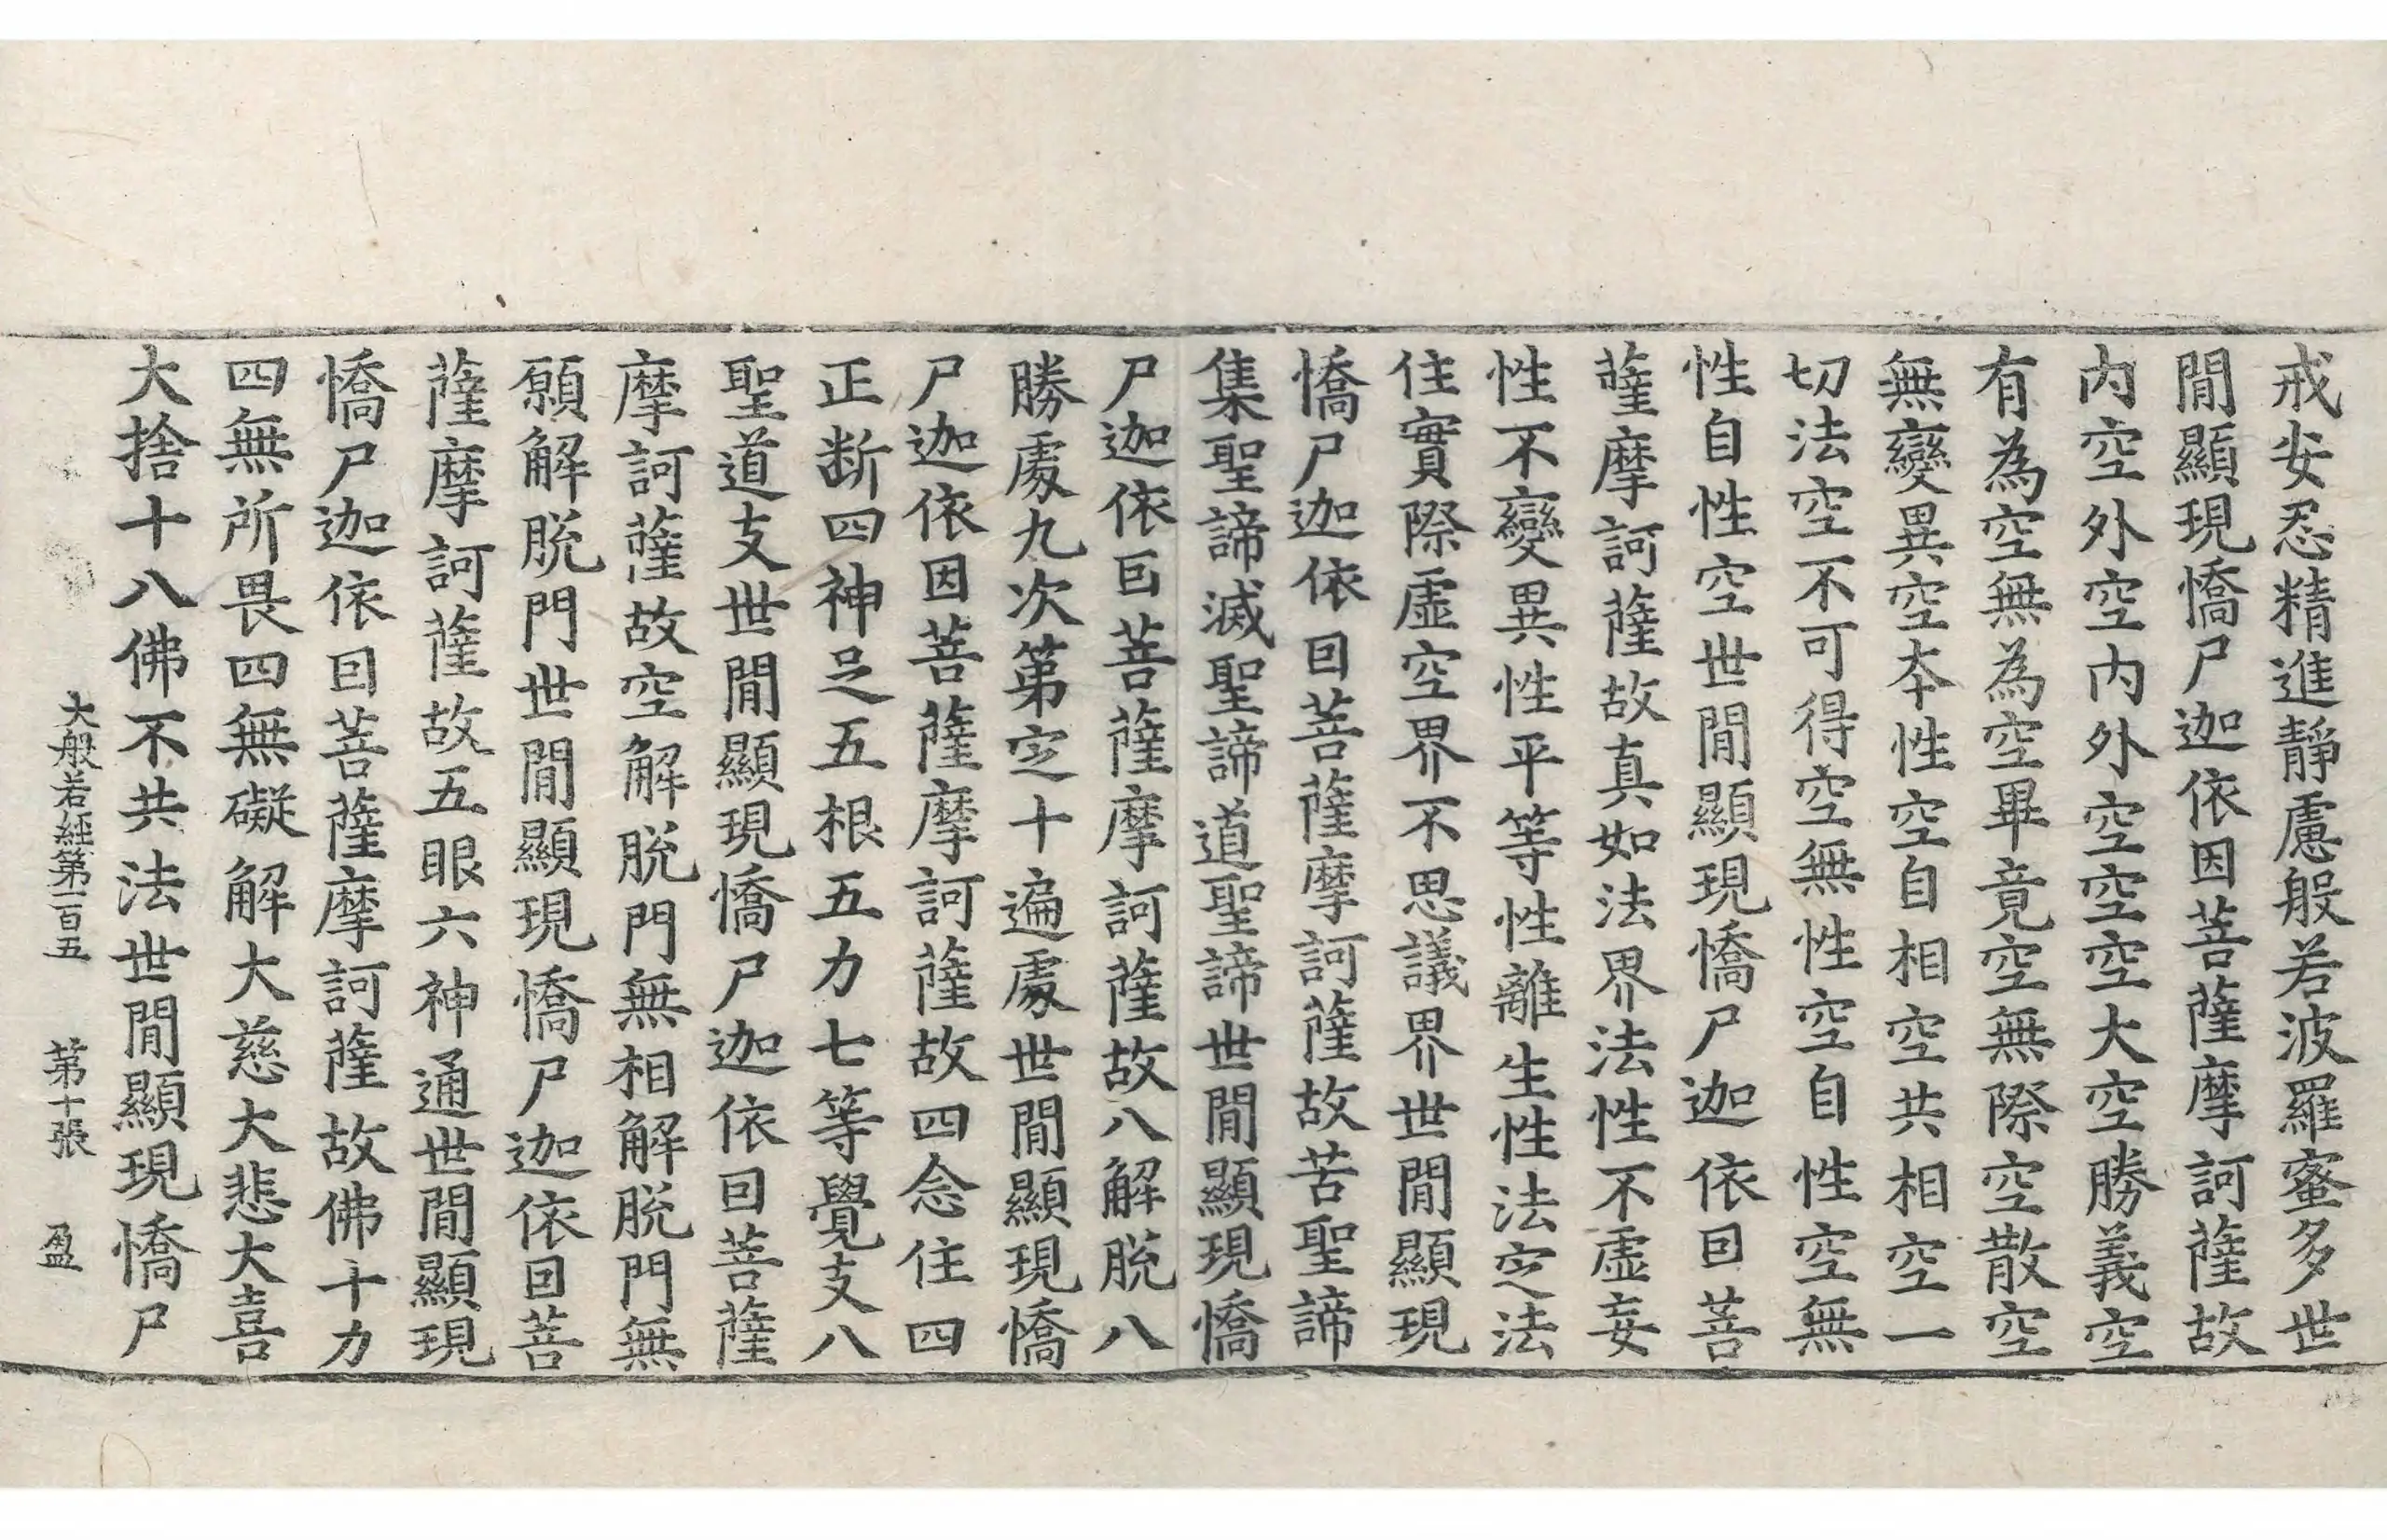 戒安忍精進靜慮般若波羅蜜多世
閒顯現憍尸迦依因菩薩摩訶薩故
内空外空内外空空空大空勝義空
有為空無為空畢竟空無際空散空
無變異空夲性空自相空共相空一
切法空不可得空無性空自性空無
性自性空世閒顯現憍尸迦依因菩
薩摩訶薩故真如法界法性不虛妄
性不變異性平等性離生性法㝎法
住實際虛空界不思議界世閒顯現
憍尸迦依因菩薩摩訶薩故苦聖諦
集聖諦滅聖諦道聖諦世閒顯現憍
尸迦依因菩薩摩訶薩故八解脫八
勝處九次第㝎十遍處世閒顯現憍
尸迦依因菩薩摩訶薩故四念住四
正断四神足五根五力七等覺支八
聖道支世閒顯現憍尸迦依因菩薩
摩訶薩故空解脫門無相解脫門無
願解脫門世閒顯現憍尸迦依因菩
薩摩訶薩故五眼六神通世閒顯現
憍尸迦依因菩薩摩訶薩故佛十力
四無所畏四無礙解大慈大悲大喜
大捨十八佛不共法世閒顯現憍尸
大般若經第一百五 第十張 盈